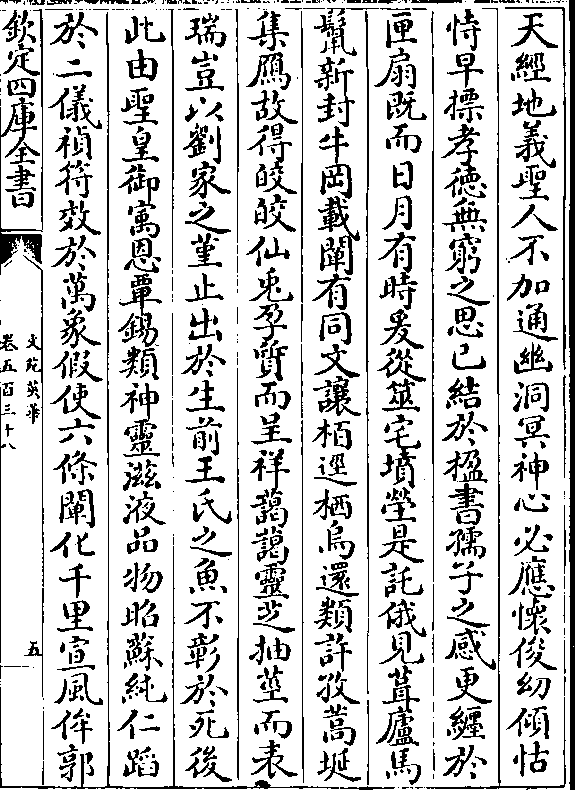 天經地義聖人不加通幽洞冥神心必應懷俊幼傾怙
恃早摽孝徳無窮之思已結於楹書孺子之感更纒於
匣扇既而日月有時爰從筮宅墳塋是託俄見葺廬馬
鬛新封牛岡載闡有同文讓栢逕栖烏還類許孜蒿埏
集鴈故得皎皎仙兎孕質而呈祥藹藹靈芝抽莖而表
瑞豈以劉家之菫止出於生前王氏之魚不彰於死後
此由聖皇御㝢恩覃錫類神靈滋液品物昭蘇純仁蹈
於二儀禎符效於萬象假使六條闡化千里宣風侔郭
欽定四庫全書
文苑英華
卷五百三十八
五